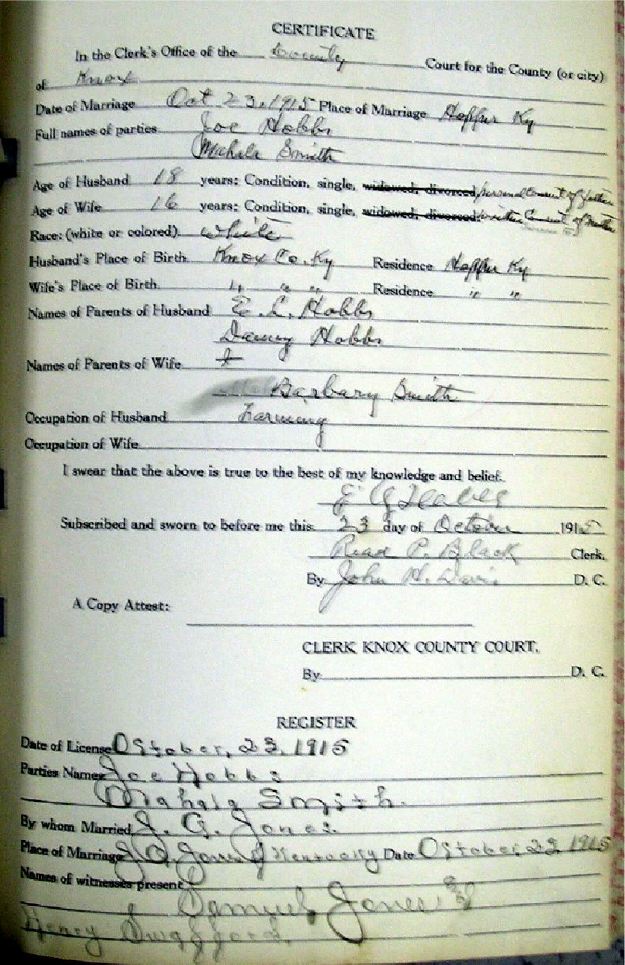 CERTIFICATE
In the Clerk's Office of the County Court for the County (or city)
of Knox
Date of Marriage Oct 23, 1915 Place of Marriage Ky
Full names of parties Joe Hobbs
Mahala Smith
Age of Husband 18 years; Condition, single, widowed, divorced, personal consent of father
Age of Wife 16 years; Condition, single, widowed, divorced. written consent of
Race: (white or colored). white
Husband's Place of Birth Knox Co. Ky Residence Ky
Wife's Place of Birth " " " Residence " "
Names of Parents of Husband E. L. Hobbs
Hobbs
Names of Parents of Wife
Barbary Smith
Occupation of Husband Farming
Occupation of Wife
I swear that the above is true to the best of my knowledge and belief.
Subscribed and sworn to before me this 23 day of October 1915
Read P. Black Clerk.
By John H. Davis D. C.
A Copy Attest:
CLERK KNOX COUNTY COURT.
By D. C.
REGISTER
Date of License October, 23, 1915
Parties Names Joe Hobbs
Mahala Smith.
By whom Married J. Q. Jones.
Place of Marriage J Q. Jones Kentucky Date October 23 1915
Names of witnesses present
Samuel Jones
Henry Swafford,